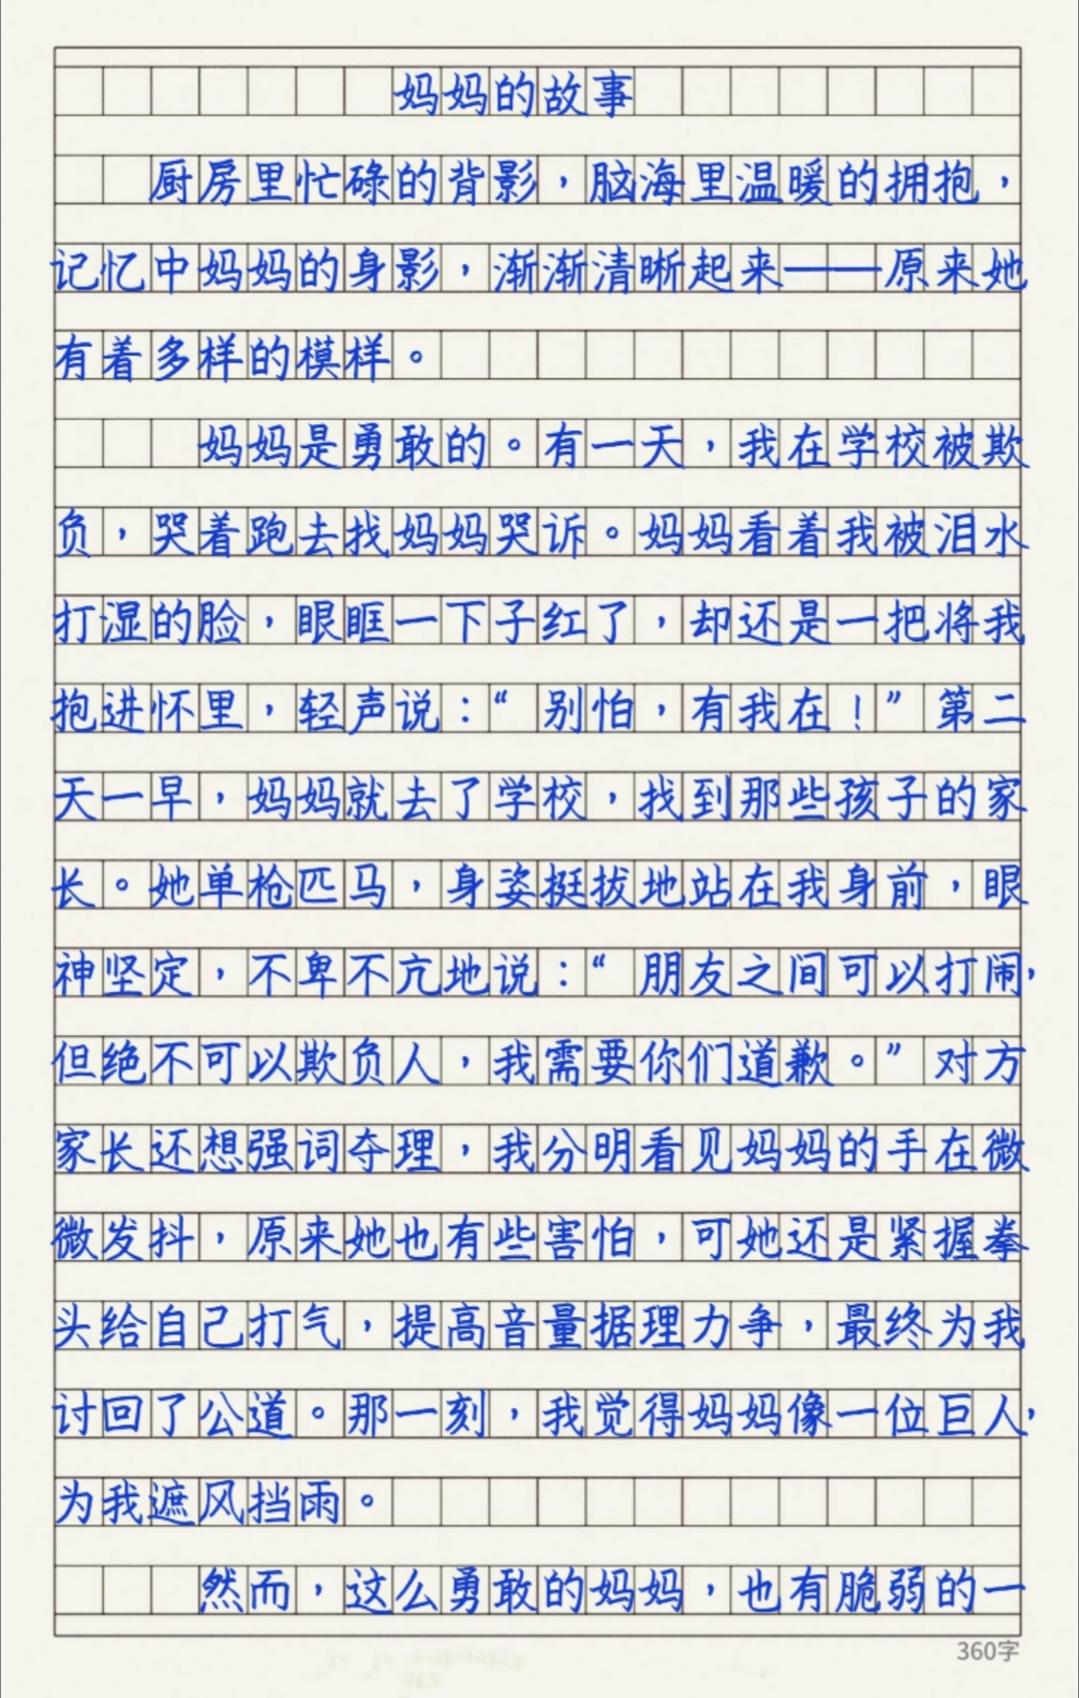 妈妈的故事
厨房里忙碌的背影，脑海里温暖的拥抱，
记忆中妈妈的身影，渐渐清晰起来——原来她
有着多样的模样。
妈妈是勇敢的。有一天，我在学校被欺
负，哭着跑去找妈妈哭诉。妈妈看着我被泪水
打湿的脸，眼眶一下子红了，却还是一把将我
抱进怀里，轻声说：“别怕，有我在！”第二
天一早，妈妈就去了学校，找到那些孩子的家
长。她单枪匹马，身姿挺拔地站在我身前，眼
神坚定，不卑不亢地说：“朋友之间可以打闹，
但绝不可以欺负人，我需要你们道歉。”对方
家长还想强词夺理，我分明看见妈妈的手在微
微发抖，原来她也有些害怕，可她还是紧握拳
头给自己打气，提高音量据理力争，最终为我
讨回了公道。那一刻，我觉得妈妈像一位巨人，
为我遮风挡雨。
然而，这么勇敢的妈妈，也有脆弱的一
360字